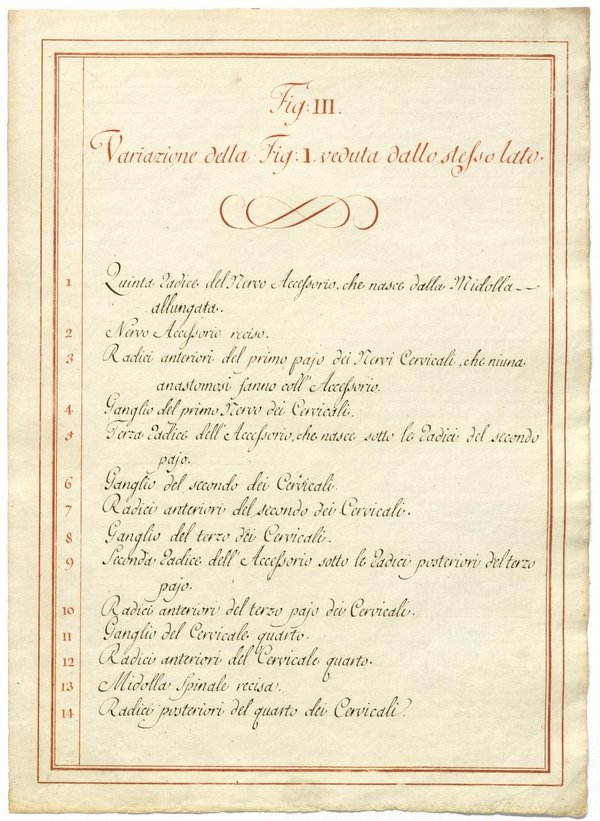 Fig: III.
Variazione della Fig: I. veduta dallo stesso lato.
1 Quinta Radice del Nervo Accessorio, che nasce dalla Midolla
allungata.
2 Nervo Accessorio reciso.
3 Radici anteriori del primo pajo dei Nervi Cervicali, che niuna
anastomosi fanno coll'Accessorio.
4 Ganglio del primo Nervo dei Cervicali.
5 Terza Radice dell'Accessorio, che nasce sotto le Radici del secondo
pajo.
6 Ganglio del secondo dei Cervicali.
7 Radici anteriori del secondo dei Cervicali.
8 Ganglio del terzo dei Cervicali.
9 Seconda Radice dell'Accessorio sotto le Radici posteriori del terzo
pajo.
10 Radici anteriori del terzo pajo dei Cervicali.
11 Ganglio del Cervicale quarto.
12 Radici anteriori del Cervicale quarto.
13 Midolla Spinale recisa.
14 Radici posteriori del quarto dei Cervicali.